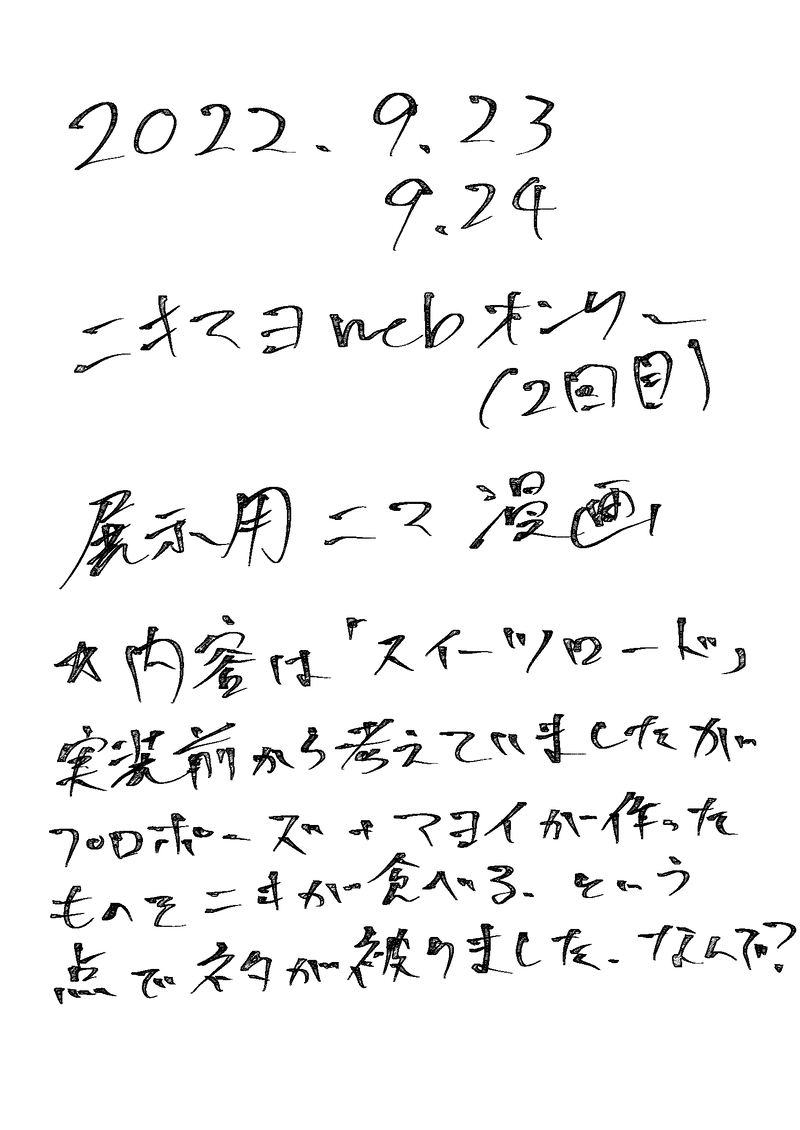 2022.9.23
9.24
ニキマヨwebオンリー
(2回目)
展示用ニマ漫画
☆内容は「スイーツロード」
実装前から考えていましたが
プロポーズ+マヨイが作った
ものをニキが食べる、という
点でネタが被りました。なんで?